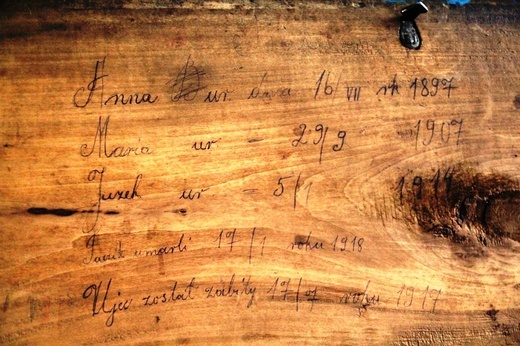 Anna ur dnia 16/VII rok 1897
Maria ur - 29/9 1907
Juzek ur - 5/1
Juzik umarli 17/1 roku 1918
Ujic został zabity 17/7 roku 1917